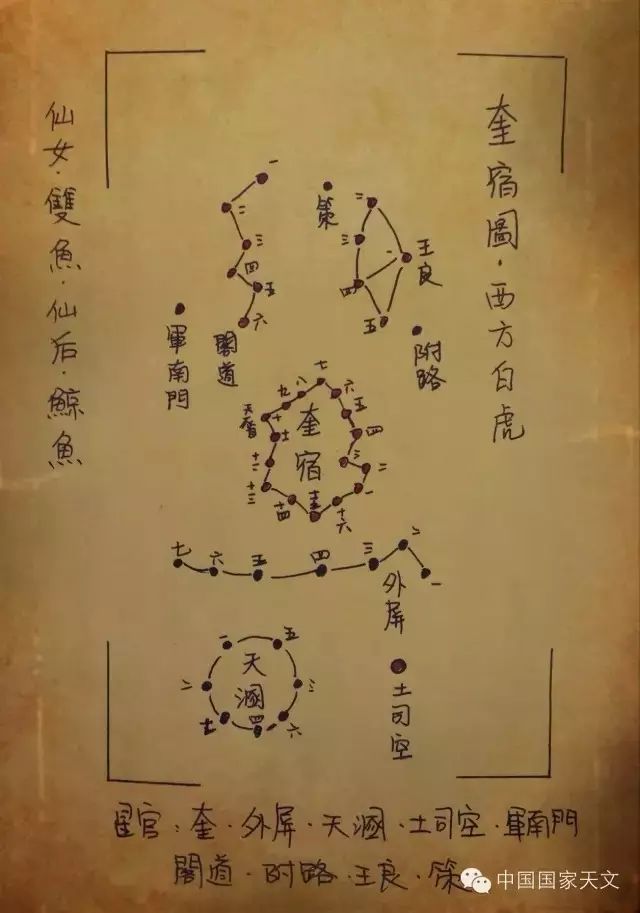 奎宿圖·西方白虎
仙女·雙魚·仙后·鯨魚
一
二
三
四
五
六
閣道
軍南門
策
二
三
四
五
一
王良
附路
奎宿
一
二
三
四
五
六
七
八
九
十
十二
十三
十四
十五
十六
外屏
一
二
三
四
五
六
七
天溷
一
二
三
四
五
六
七
土司空
星官：奎·外屏·天溷·土司空·軍南門
閣道·附路·王良·策
中国国家天文